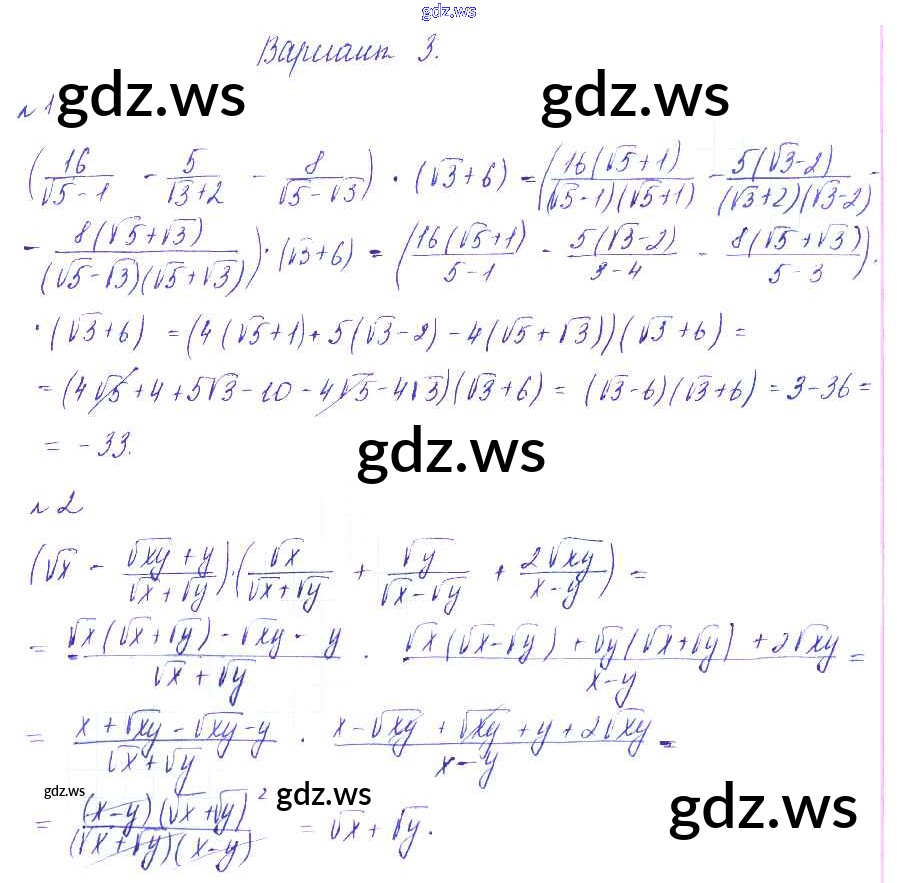 gdz.ws
Вариант 3.
gdz.ws gdz.ws
№1
(16/(√5-1) - 5/(√3+2) - 8/(√5-√3)) · (√3+6) = (16(√5+1)/((√5-1)(√5+1)) - 5(√3-2)/((√3+2)(√3-2)) -
- 8(√5+√3)/((√5-√3)(√5+√3))) · (√3+6) = (16(√5+1)/(5-1) - 5(√3-2)/(3-4) - 8(√5+√3)/(5-3)) ·
· (√3+6) = (4(√5+1) + 5(√3-2) - 4(√5+√3))(√3+6) =
= (4√5 + 4 + 5√3 - 10 - 4√5 - 4√3)(√3+6) = (√3-6)(√3+6) = 3-36 =
= -33.
gdz.ws
№2
(√x - (√xy + y)/(√x + √y)) · (√x/(√x+√y) + √y/(√x-√y) + 2√xy/(x-y)) =
= (√x(√x+√y) - √xy - y)/(√x + √y) · (√x(√x-√y) + √y(√x+√y) + 2√xy)/(x-y) =
= (x + √xy - √xy - y)/(√x+√y) · (x - √xy + √xy + y + 2√xy)/(x-y) =
= (x-y)(√x+√y)²/((√x+√y)(x-y)) = √x + √y.
gdz.ws gdz.ws gdz.ws